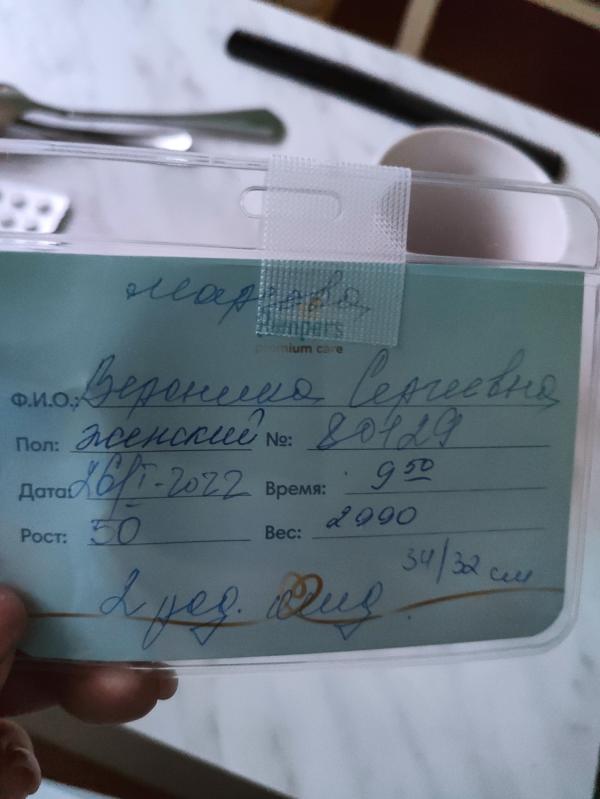 Pampers
premium care
Ф.И.О.: Вероника Сергеевна
Пол: женский №: 80729
Дата: 26/I-2022 Время: 9 50
Рост: 50 Вес: 2990
34/32 см
2 род. отд.